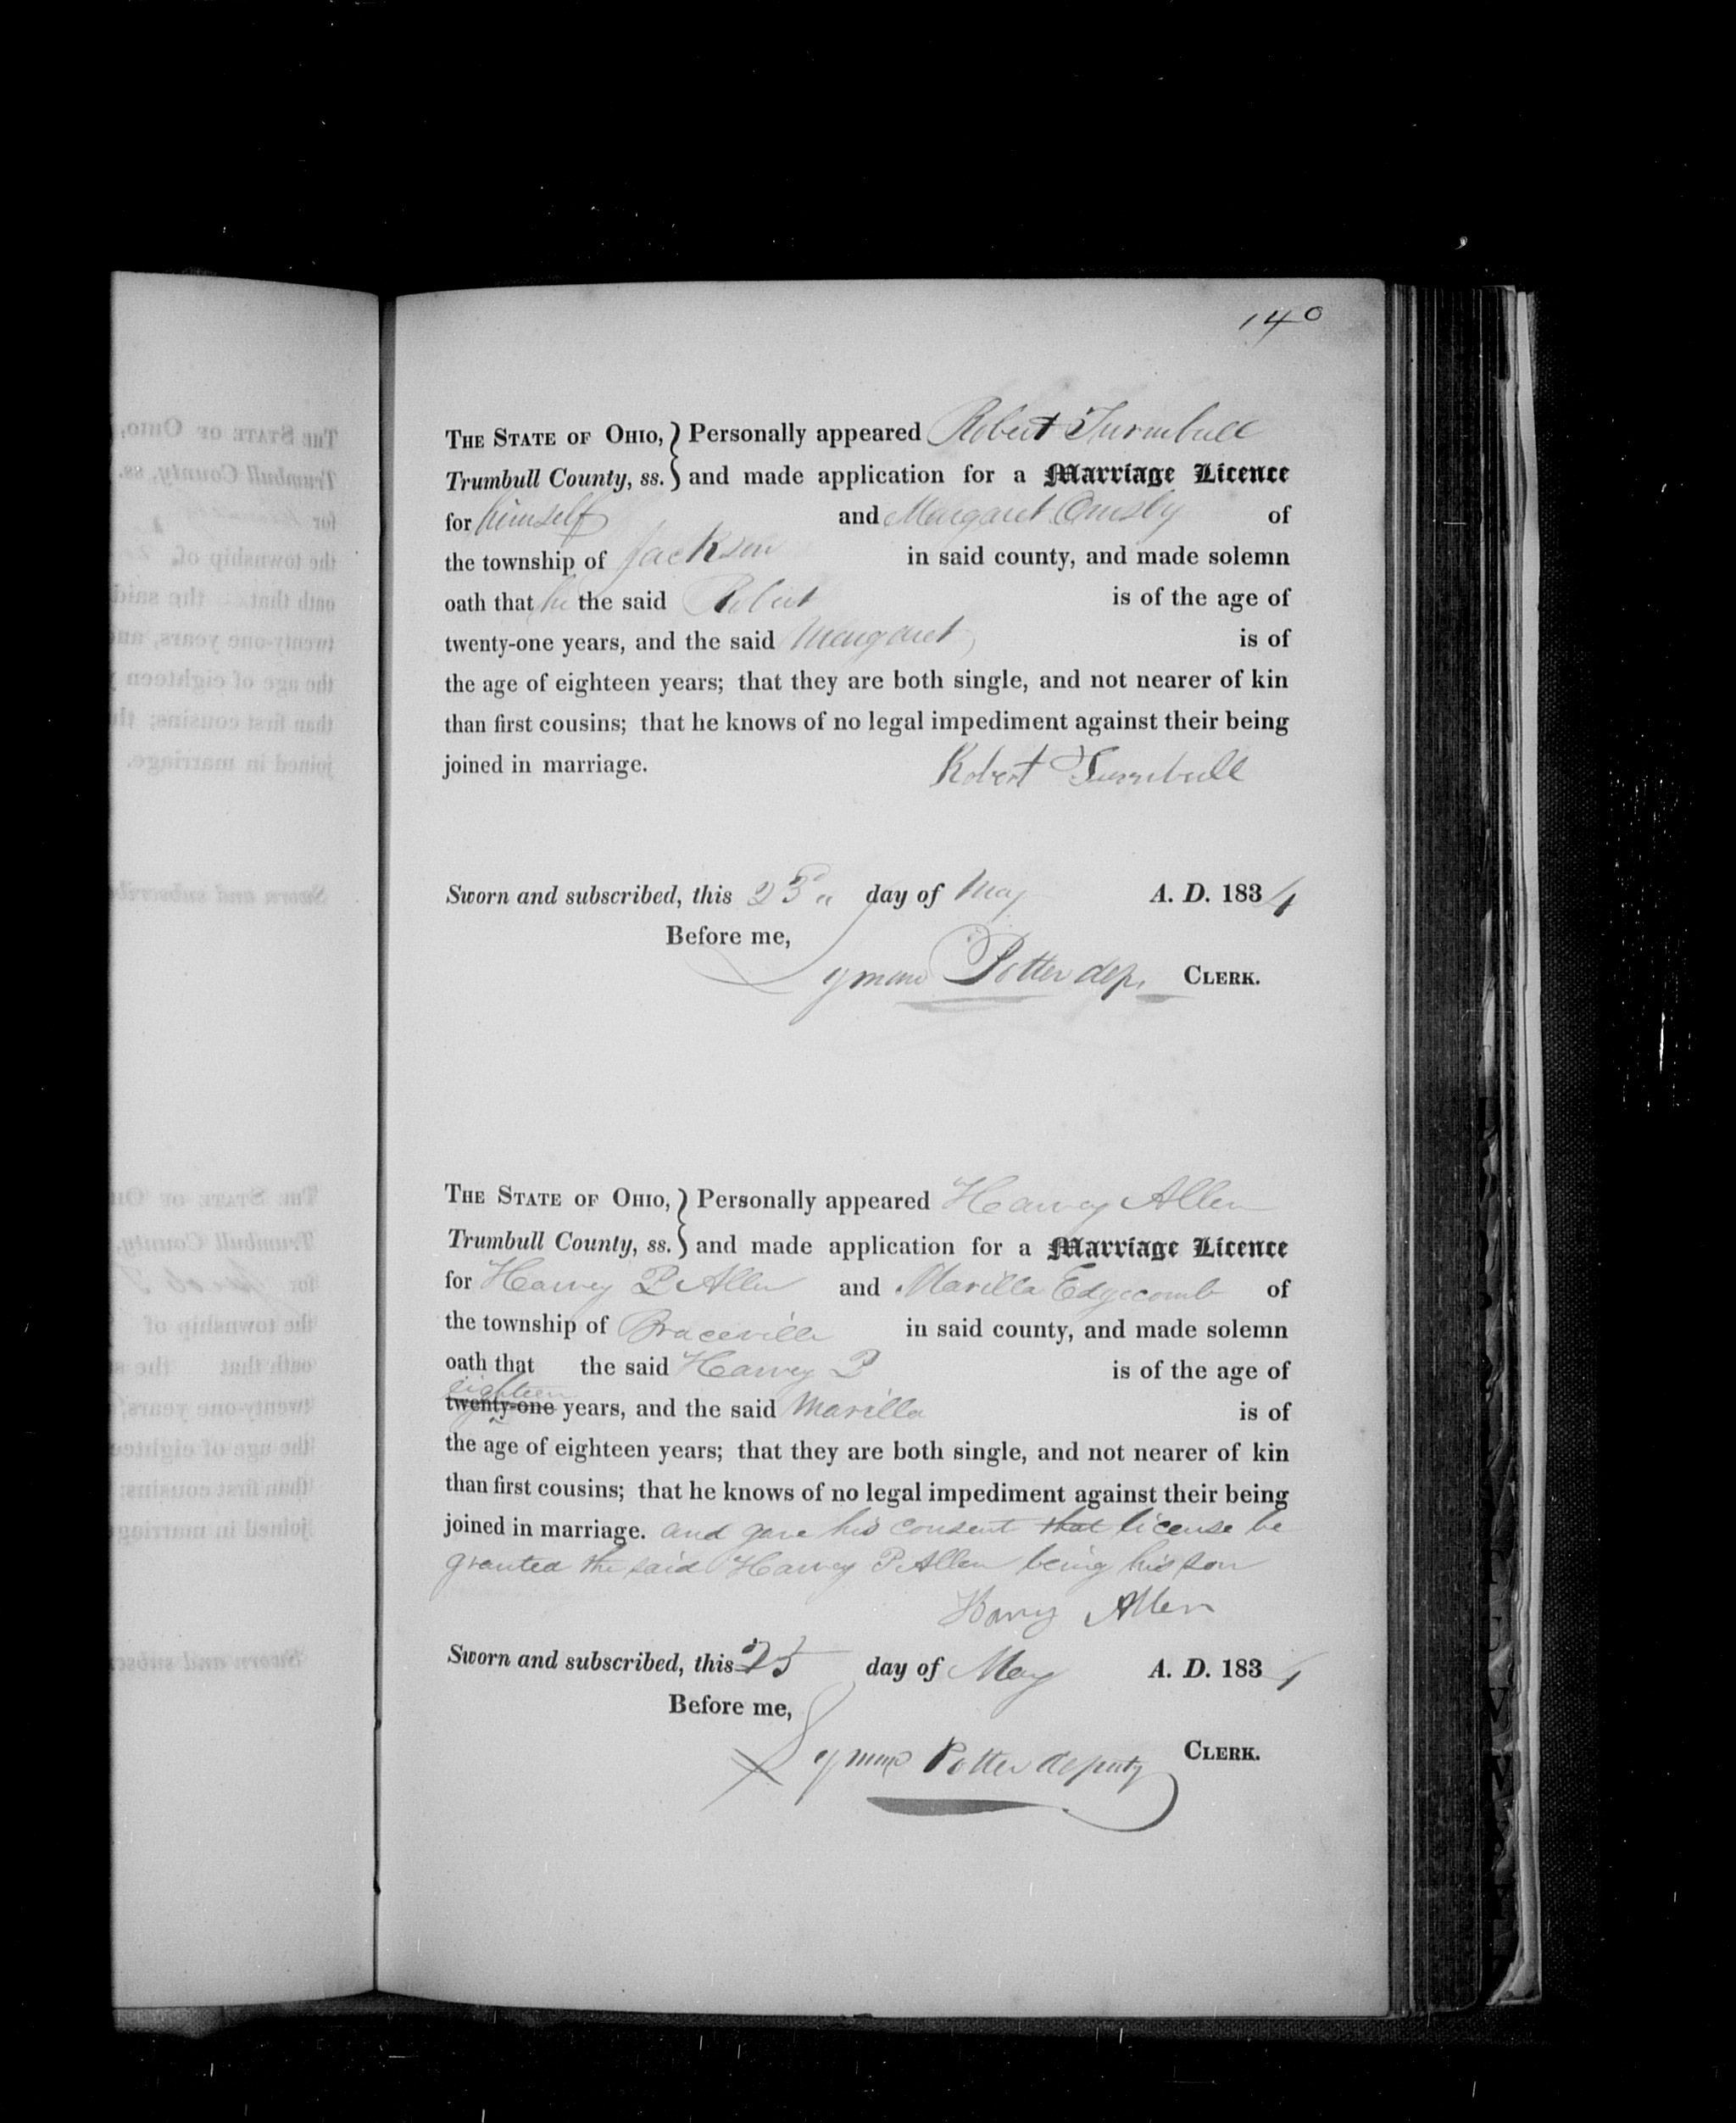 140
THE STATE OF OHIO, } Personally appeared Robert Turnbull
Trumbull County, ss. } and made application for a Marriage Licence
for himself and Margaret Ormsby of
the township of Jackson in said county, and made solemn
oath that he the said Robert is of the age of
twenty-one years, and the said Margaret is of
the age of eighteen years; that they are both single, and not nearer of kin
than first cousins; that he knows of no legal impediment against their being
joined in marriage. Robert Turnbull
Sworn and subscribed, this 23d day of May A. D. 1834
Before me,
Lyman Potter dep. CLERK.
THE STATE OF OHIO, } Personally appeared Harvey Allen
Trumbull County, ss. } and made application for a Marriage Licence
for Harvey P Allen and Marilla Edgecomb of
the township of Braceville in said county, and made solemn
oath that the said Harvey P is of the age of
eighteen
twenty-one years, and the said Marilla is of
the age of eighteen years; that they are both single, and not nearer of kin
than first cousins; that he knows of no legal impediment against their being
joined in marriage. and gave his consent that license be
granted the said Harvey P. Allen being his son
Harvy Allen
Sworn and subscribed, this 25 day of May A. D. 1834
Before me,
Lyman Potter deputy CLERK.